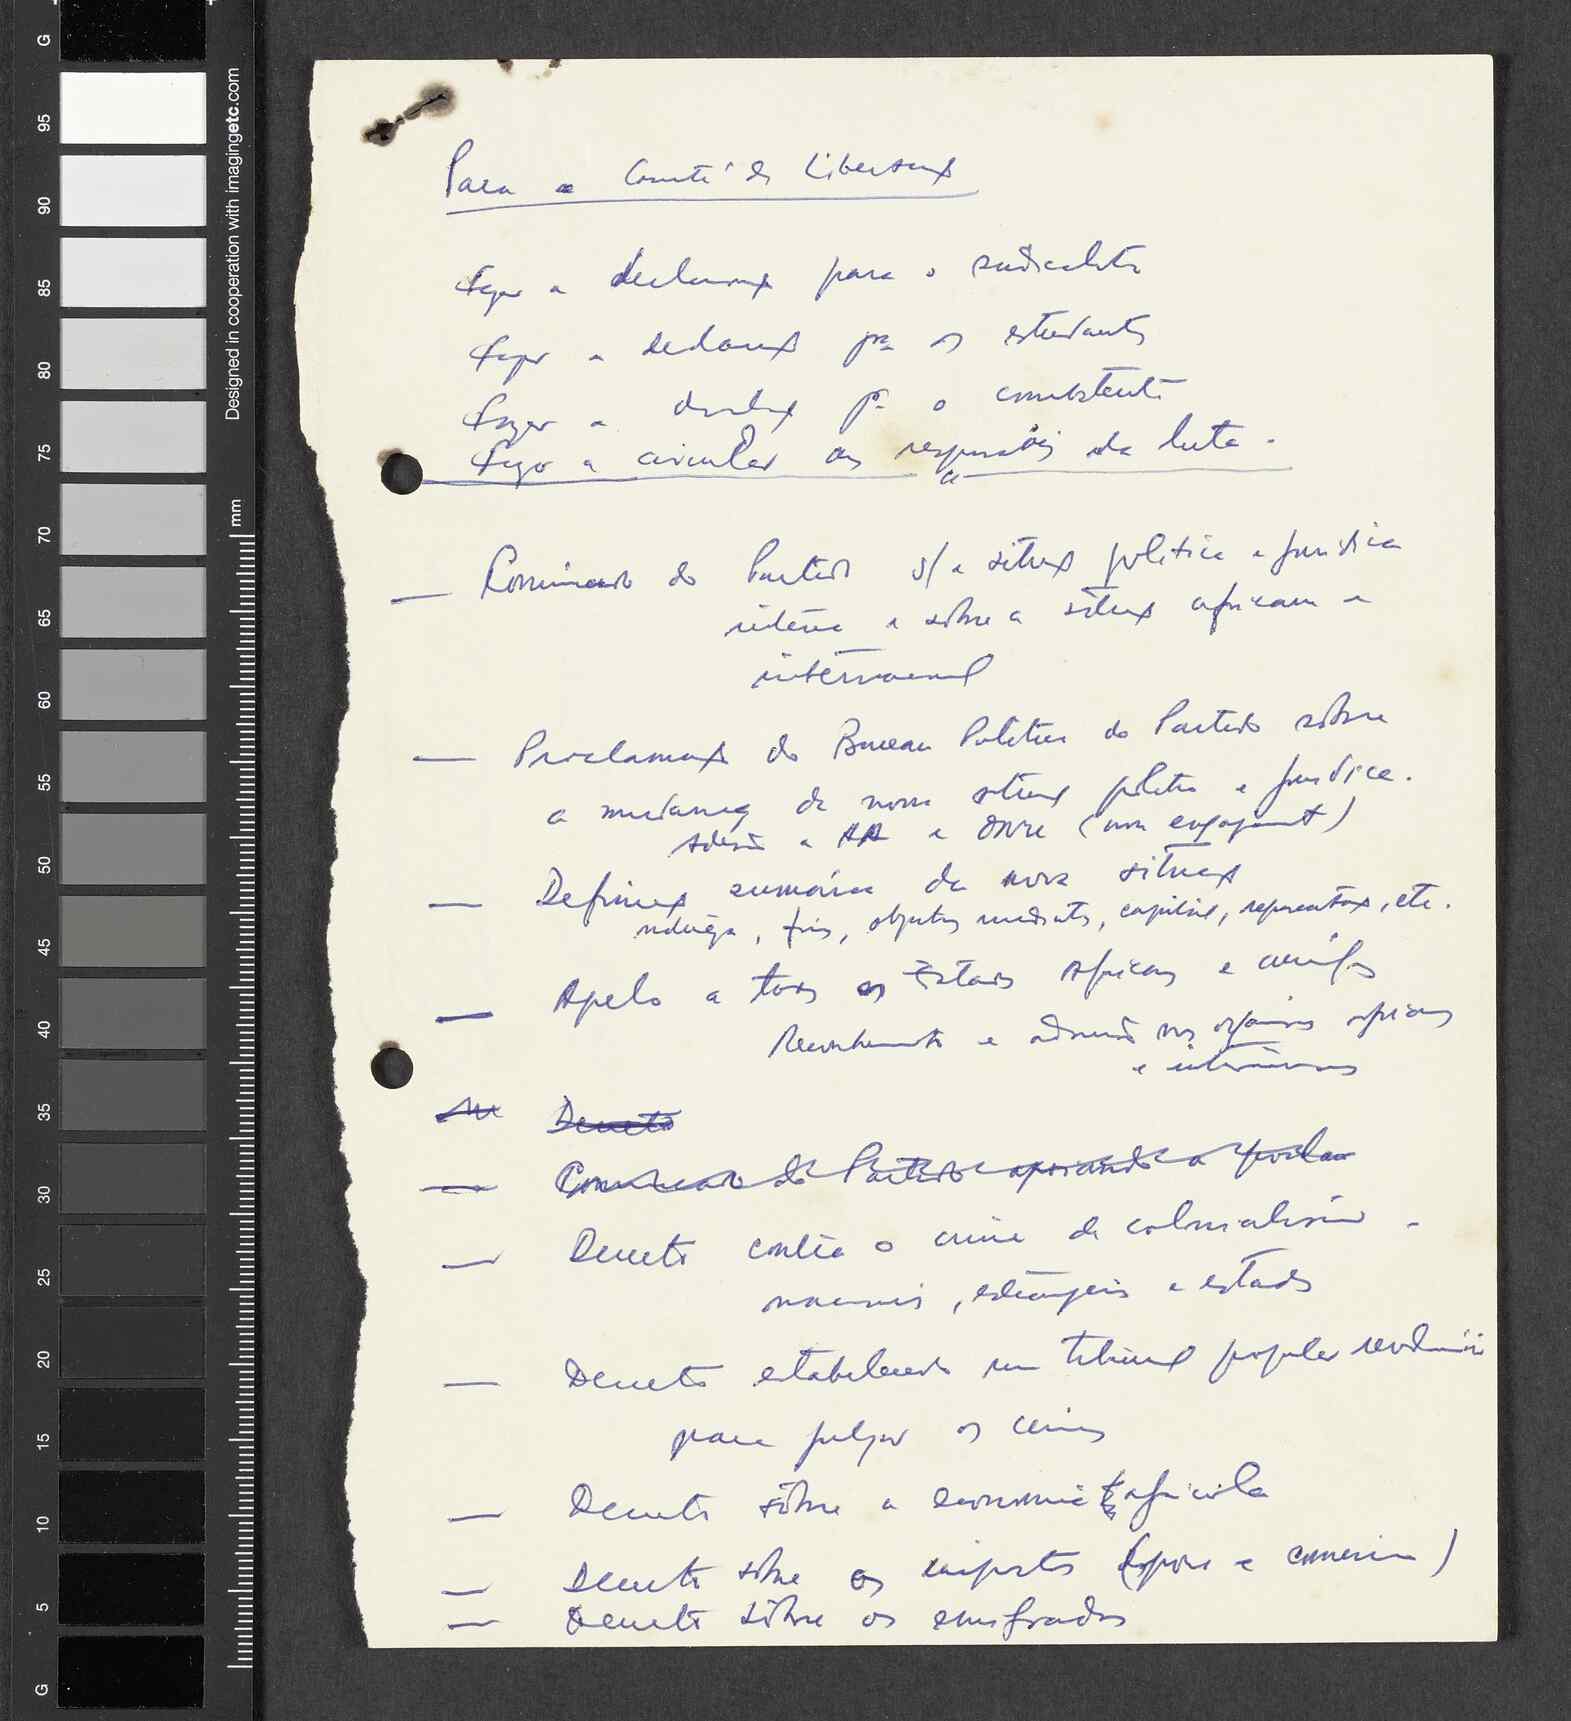 Para o Comité de Libertação
Fazer a declaração para o sindicalista
Fazer a declaração pª os estudantes
Fazer a pª o combatente
Fazer a circular aos responsáveis da luta.
— Comunicado do Partido s/ a situação politica e juridica
interna e sôbre a situação africana e
internacional
— Proclamação do Bureau Politico do Partido sôbre
a mudança da nossa situação politica e juridica.
Adesão a AA e ONU (non engagement)
— Definição sumária da nova situação
fins, objectivos imediatos, capital, representação, etc.
— Apelo a todos os Estados Africanos e amigos
Reconhecimento e admissão nos organismos africanos
e internacionais
Decreto
— Comunicado do Partido apoiando a proclam
— Decreto contra o crime de colonialismo -
nacionais, estrangeiros e estados
— Decreto estabelecendo um tribunal popular revolucionário
para julgar os crimes
— Decreto sôbre a economia agricola
— Decreto sôbre os impostos (povo e comercio)
— Decreto sôbre os emigrados
G
95
90
85
80
75
70
65
60
55
50
45
40
35
30
25
20
15
10
5
G
Designed in cooperation with imagingetc.com
mm